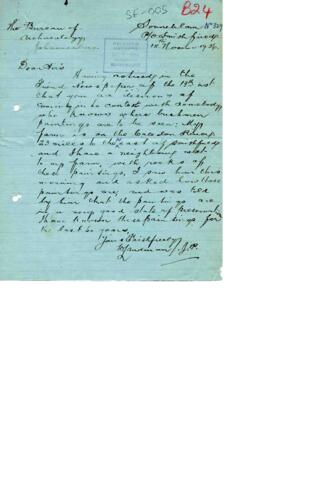 SF-005 B24
The Bureau of
Archaeology,
Johannesburg
Dear Sirs
Having noticed in the
Friend Newspaper of the 14th inst
that you are desirous of
coming in to contact with somebody
who knows where bushmen
paintings are to be seen: My
farm is on the Caledon River
23 miles to the east of Smithfield
and I have a neighbour next
to my farm, with rocks of
these paintings, I saw him this
morning and asked how these
paintings are, and was told
by him that the paintings are
in a very good state of preservat
I have known these paintings for
the last 60 years.
Yours Faithfully
J.P.